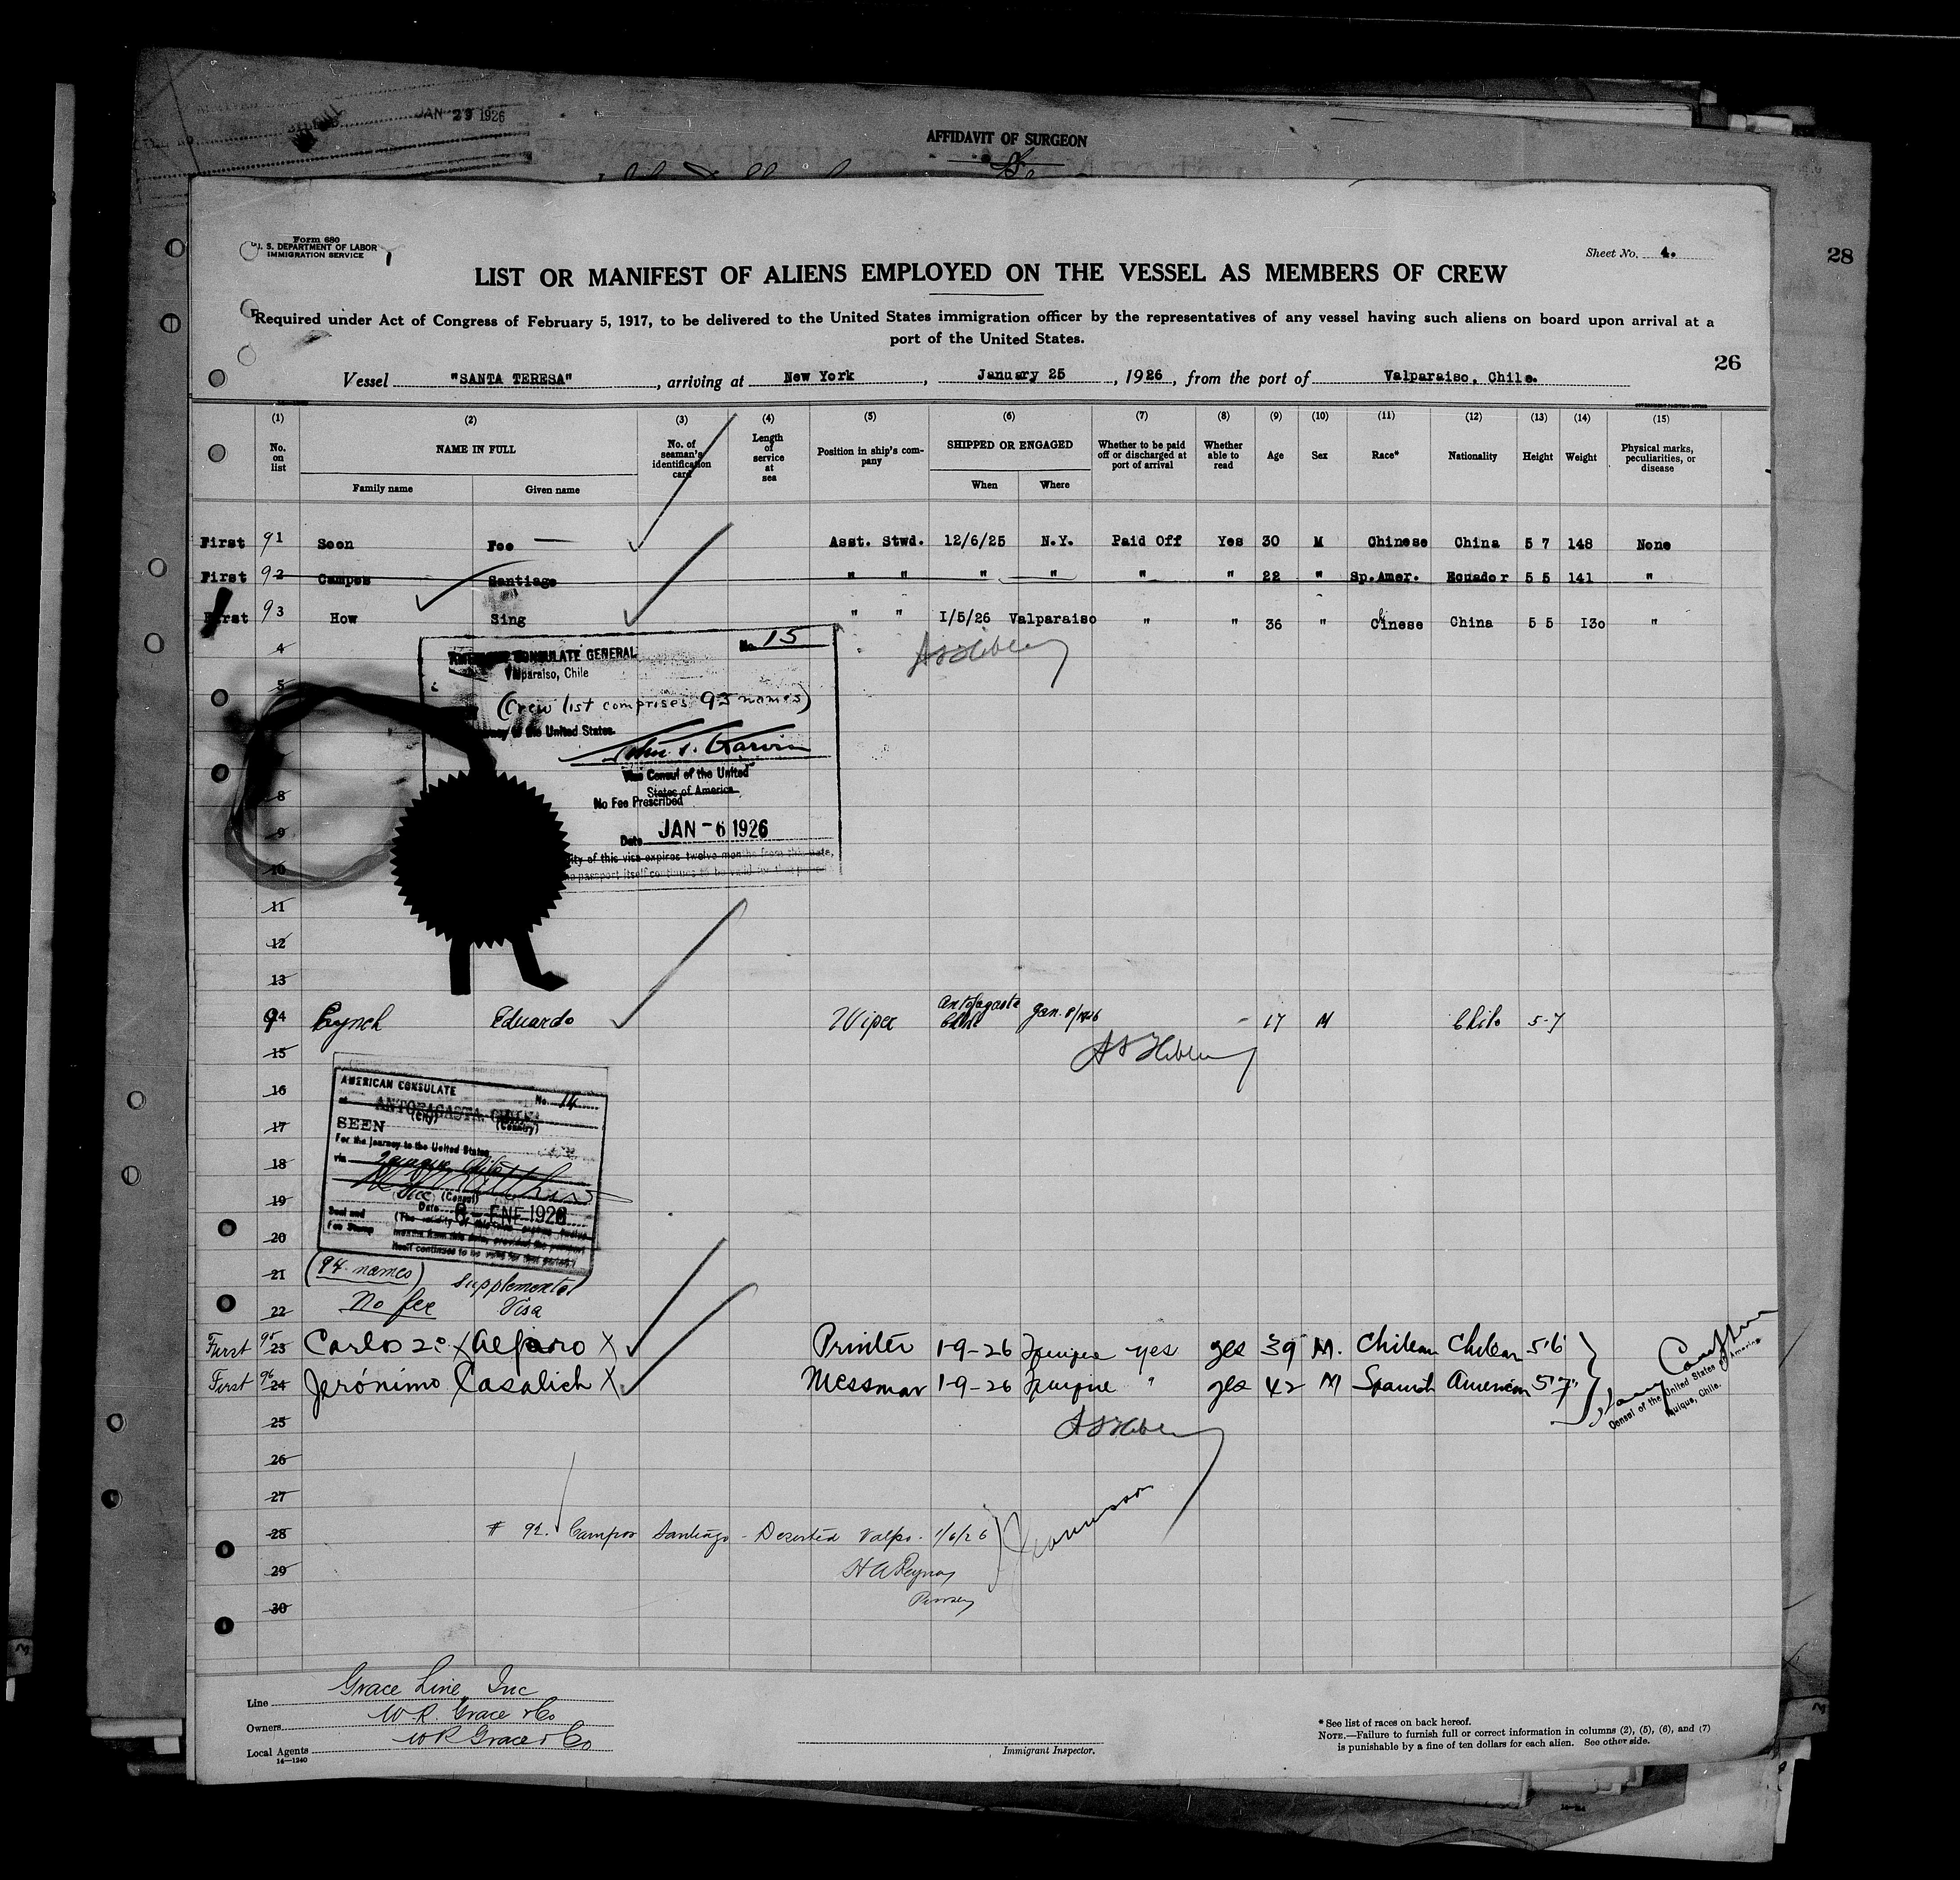 JAN 29 1926
AFFIDAVIT OF SURGEON
28
Form 680
U. S. DEPARTMENT OF LABOR
IMMIGRATION SERVICE
Sheet No. 4.
LIST OR MANIFEST OF ALIENS EMPLOYED ON THE VESSEL AS MEMBERS OF CREW
Required under Act of Congress of February 5, 1917, to be delivered to the United States immigration officer by the representatives of any vessel having such aliens on board upon arrival at a
port of the United States.
26
Vessel "SANTA TERESA", arriving at New York, January 25, 1926, from the port of Valparaiso, Chile.
GOVERNMENT PRINTING OFFICE
(1) (2) (3) (4) (5) (6) (7) (8) (9) (10) (11) (12) (13) (14) (15)
No. on list NAME IN FULL No. of seaman's identification card Length of service at sea Position in ship's company SHIPPED OR ENGAGED Whether to be paid off or discharged at port of arrival Whether able to read Age Sex Race* Nationality Height Weight Physical marks, peculiarities, or disease
Family name Given name When Where
First 91 Seen Foo Asst. Stwd. 12/6/25 N.Y. Paid Off Yes 30 M Chinese China 5 7 148 None
First 92 Campos Santiago " " " " " " 22 " Sp.Amer. Ecuador 5 5 141 "
First 93 How Sing " " 1/5/26 Valparaiso " " 36 " Chinese China 5 5 130 "
4
No. 15
CONSULATE GENERAL
Valparaiso, Chile
5
(Crew list comprises 93 names)
to the United States.
Vice Consul of the United
States of America
8
No Fee Prescribed
Date JAN - 6 1926
9
ity of this visa expires twelve months from this date,
passport itself continues to be valid for that period
10
11
12
13
94 Lynch Eduardo Wiper Antofagasta Chile Jan. 8/1926 17 M Chile 5-7
15
AMERICAN CONSULATE No. 14
16
at ANTOFAGASTA, CHILE
(City) (Country)
17
SEEN
For the journey to the United States
18
via
19
(Consul)
Date 8 - ENE 1926
Seal and Fee Stamp
20
(The validity of this visa expires twelve
months from this date, provided the passport
itself continues to be valid for that period)
21 (94 names) Supplemental
22 No fee Visa
First 95 23 Carlos 2º X Alfaro X Printer 1-9-26 Iquique yes yes 39 M. Chilean Chilean 5'6"
First 96 24 Jerónimo Casalich X Messman 1-9-26 Iquique " yes 42 M Spanish American 5'7"
Consul of the United States of America
Iquique, Chile.
25
26
27
28 # 92. Campos Santiago - Deserted Valpo. 1/6/26
29
Purser
30
Line Grace Line, Inc
Owners W. R. Grace & Co
Local Agents W R Grace & Co
14—1240
Immigrant Inspector.
* See list of races on back hereof.
NOTE.—Failure to furnish full or correct information in columns (2), (5), (6), and (7)
is punishable by a fine of ten dollars for each alien. See other side.